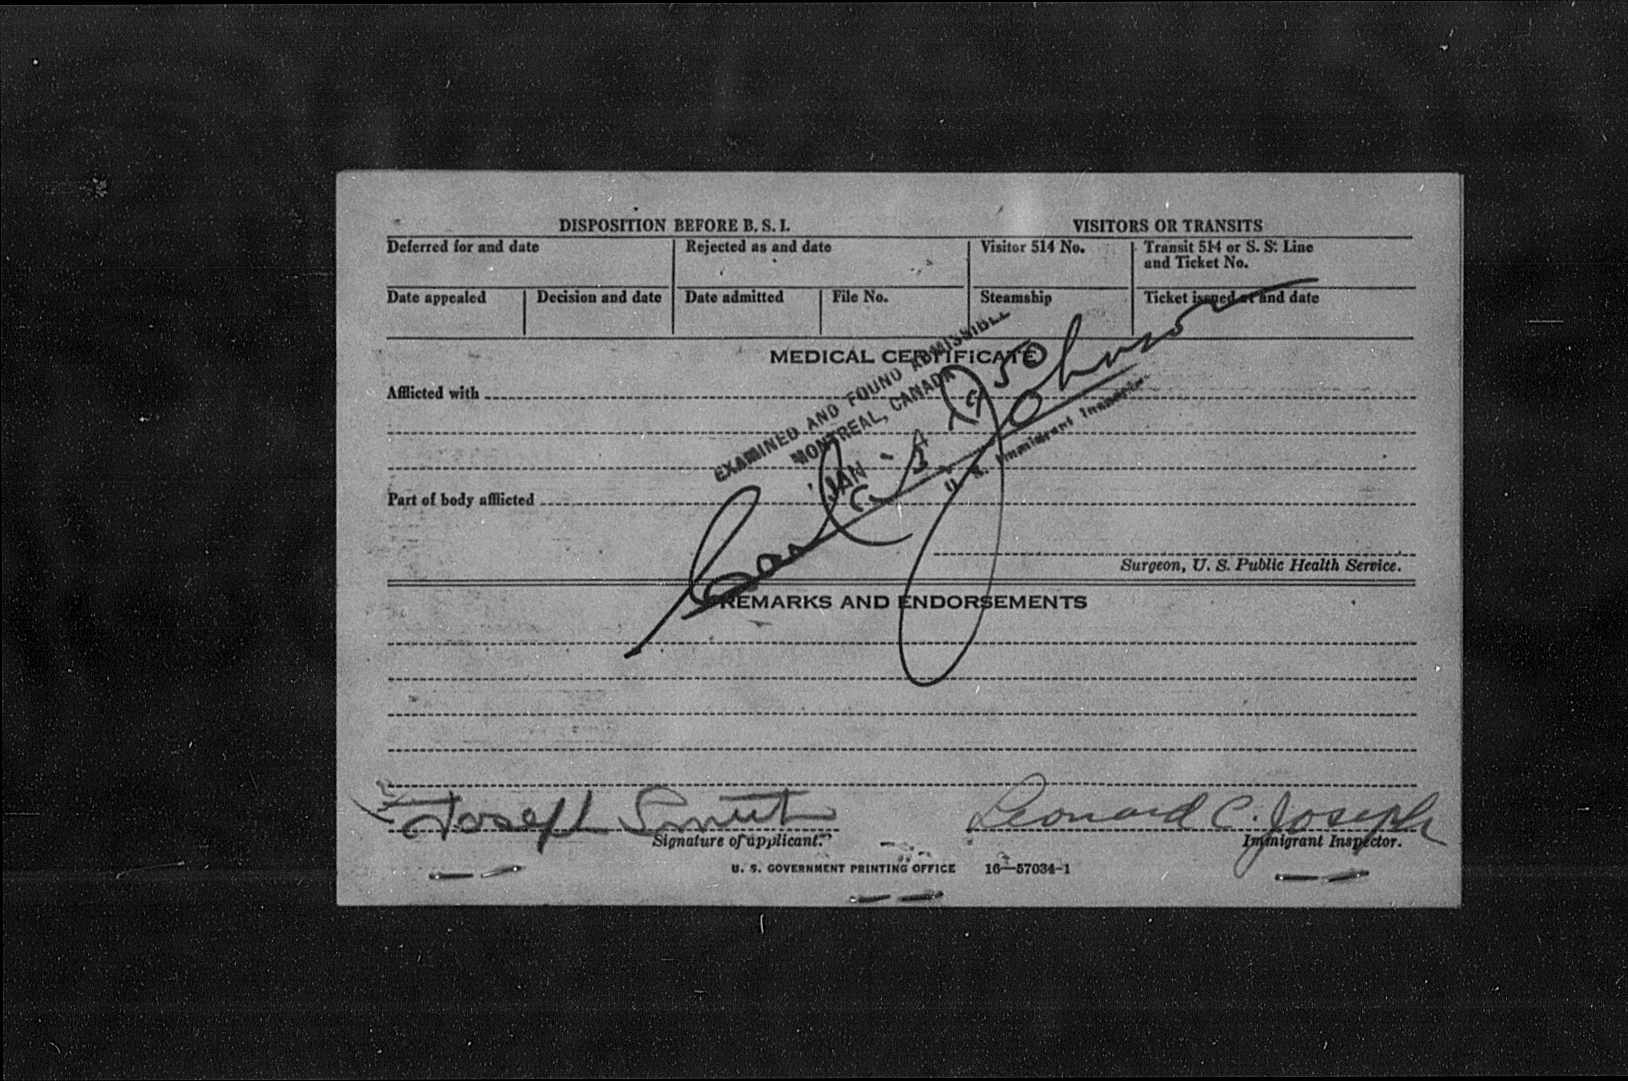 DISPOSITION BEFORE B. S. I. VISITORS OR TRANSITS
Deferred for and date Rejected as and date Visitor 514 No. Transit 514 or S. S. Line and Ticket No.
Date appealed Decision and date Date admitted File No. Steamship Ticket issued at and date
MEDICAL CERTIFICATE
Afflicted with
EXAMINED AND FOUND ADMISSIBLE
MONTREAL, CANADA
JAN 1950
Johnson
U. S. Immigrant Inspector
Part of body afflicted
Surgeon, U. S. Public Health Service.
REMARKS AND ENDORSEMENTS
Joseph Smith Leonard C. Joseph
Signature of applicant. Immigrant Inspector.
U. S. GOVERNMENT PRINTING OFFICE 16—57034-1